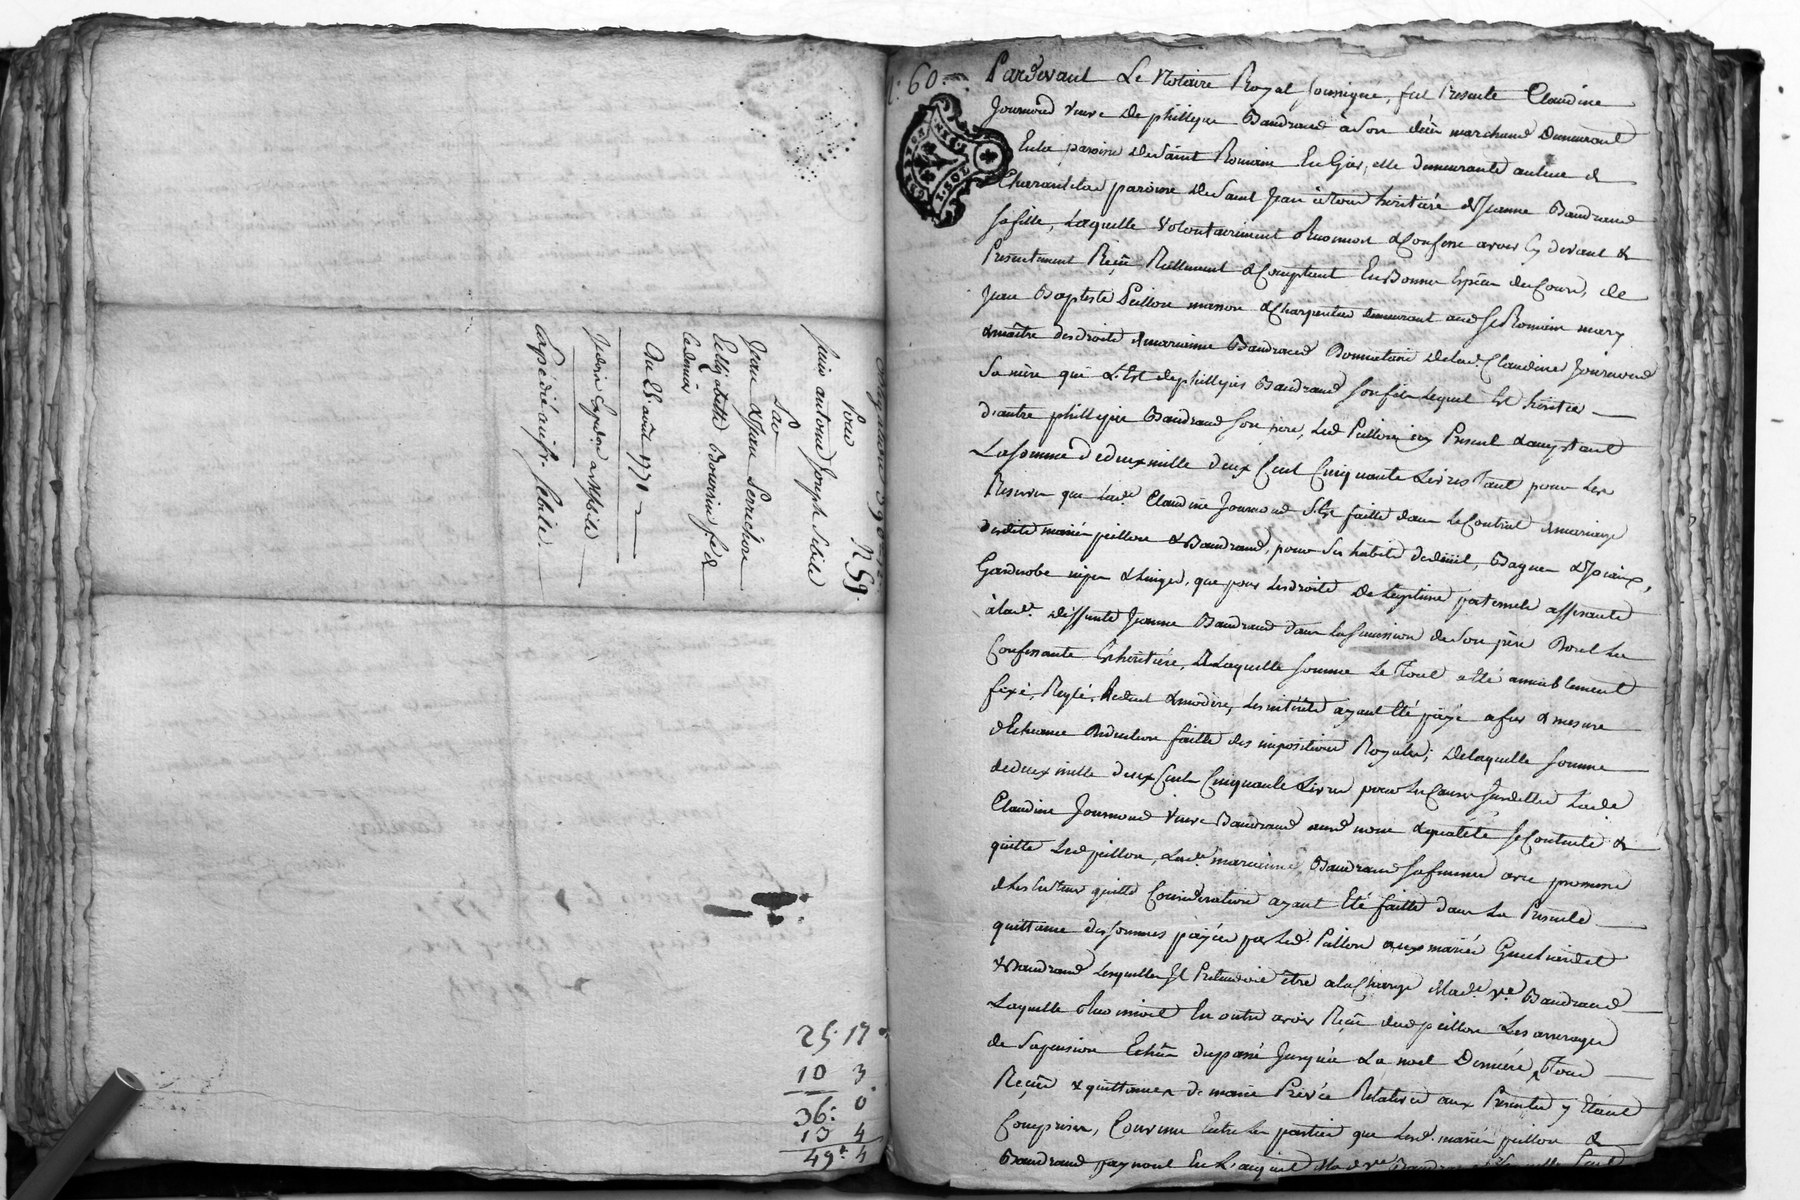 N 59.
pour
sieur antoine Joseph Sibile
Jean & Jean Perrichon
Au 28. août 1771
Expédié au sr. Sibile.
25. 17
10 3
36: 0
13 4
49. 4
60
Pardevant Le Notaire Royal soussigné, fut Presente Claudine
Journoud veuve de phillipe Baudrand à son décès marchand demeurant
En la paroisse de Saint Romain En Gier, elle demeurante au lieu de
paroisse de Saint Jean à Toulas héritière de Jeanne Baudrand
sa fille, Laquelle volontairement Reconnoit & Confesse avoir cy devant &
Presentement Reçu Réellement & Comptant En Bonnes Espèces de Cours, de
Jean Baptiste Peillon masson & charpentier demeurant aud. St. Romain mary
& maître des droits de marianne Baudrand Donnataire de lad. Claudine Journoud
Sa mère qui L'Est de phillipes Baudrand son fils lequel Est héritier
d'autre phillipe Baudrand son père, Led. Peillon icy Present & acceptant
La somme de deux mille deux Cent Cinquante Livres Tant pour Les
Reserves que lad. Claudine Journoud s'est faitte dans le Contrat de mariage
desdits mariés peillon & Baudrand, pour ses habits de deuil, Bagues & Joiaux,
Garderobe nipes & Linges, que pour les droits De Legitime paternele afferante
à lad. deffunte Jeanne Baudrand dans la succession de son père Dont La
Confessante Est héritière, A Laquelle somme Le Tout a Eté amiablement
fixé, Reglé, Reduit & moderé, les intérêts ayant Eté payé a fur & mesure
d'Echeance Deduction faitte des impositions Royales; De laquelle somme
de deux mille deux Cent Cinquante Livres pour les Causes susdittes Lad.
Claudine Journoud veuve Baudrand aud. nom & qualité se Contente &
quitte Led. peillon, Lad. marianne Baudrand sa femme avec promesse
de les En Tenir quitte Consideration ayant Eté faitte dans La Presente
quittance des sommes payées par led. Peillon aux mariés
& Baudrand Lesquelles Il Pretendoit être à la Charge de lad. ve. Baudrand
Laquelle Reconnoit En outre avoir Reçu dud. peillon Les arrerages
de Sa pension Echus du passé Jusques à La noel Dernière, Tous
Reçus & quittances de main Privée Relatives aux Presentes y Etant
Comprises, Convenu Entre les parties que lesd. mariés peillon &
Baudrand